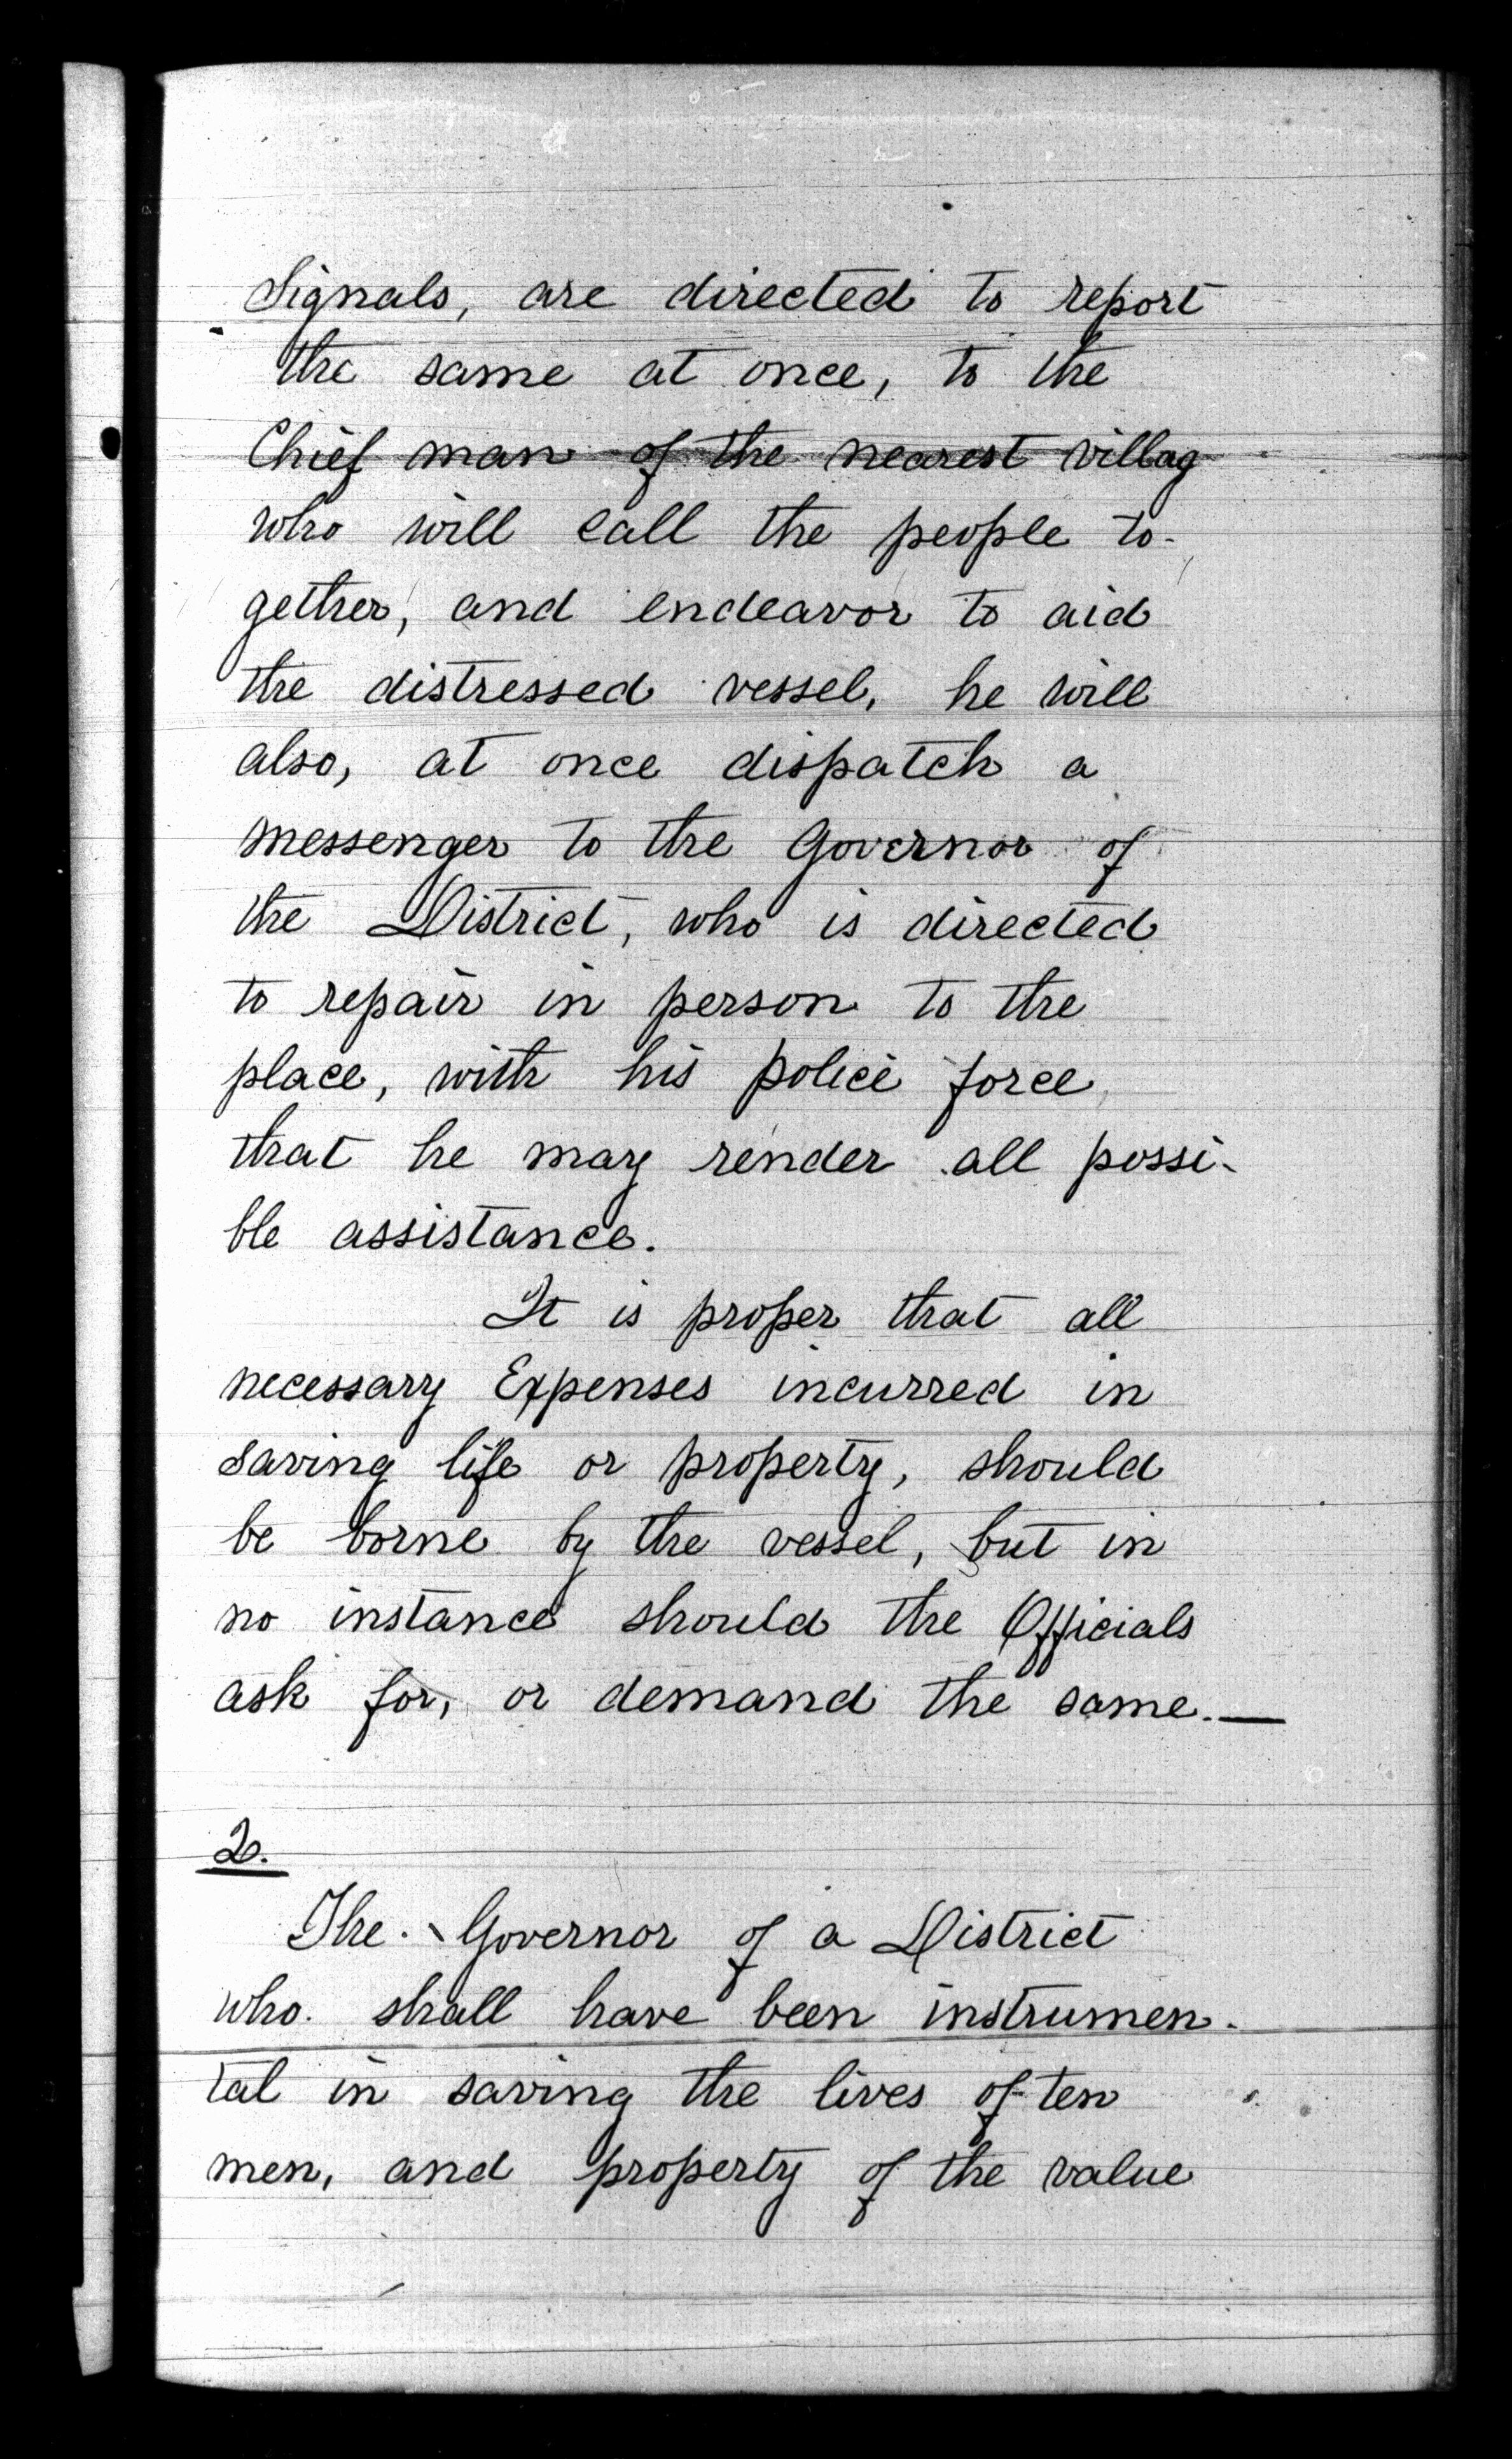 Signals, are directed to report
the same at once, to the
Chief man of the nearest villag
who will call the people to-
gether, and endeavor to aid
the distressed vessel, he will
also, at once dispatch a
messenger to the Governor of
the District, who is directed
to repair in person to the
place, with his police force,
that he may render all possi-
ble assistance.
It is proper that all
necessary Expenses incurred in
saving life or property, should
be borne by the vessel, but in
no instance should the Officials
ask for, or demand the same.—
2.
The Governor of a District
who shall have been instrumen-
tal in saving the lives of ten
men, and property of the value